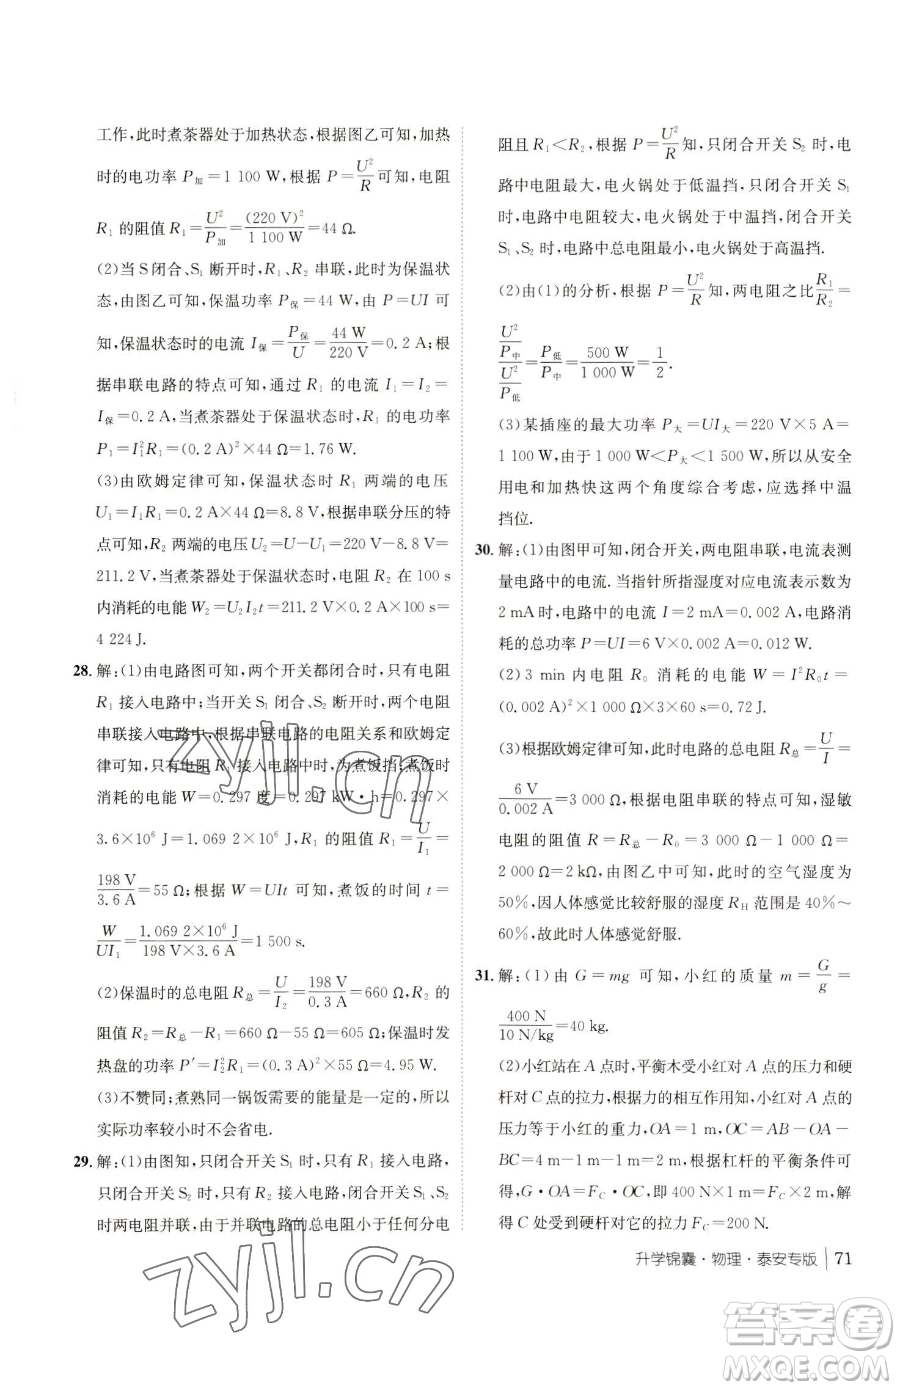 工作，此时煮茶器处于加热状态，根据图乙可知，加热
时的电功率 P加=1 100 W，根据 P=U²/R 可知，电阻
R₁ 的阻值 R₁=U²/P加=(220 V)²/1 100 W=44 Ω.
(2)当 S闭合、S₁ 断开时，R₁、R₂ 串联，处于保温状
态，由图乙可知，保温功率 P保=44 W，由 P=UI 可
知，保温状态时的电流 I保=P保/U=44 W/220 V=0.2 A；根
据串联电路的特点可知，通过 R₁ 的电流 I₁=I₂=
I保=0.2 A，当煮茶器处于保温状态时，R₁ 的电功率
P₁=I₁²R₁=(0.2 A)²×44 Ω=1.76 W.
(3)由欧姆定律可知，保温状态时 R₁ 两端的电压
U₁=I₁R₁=0.2 A×44 Ω=8.8 V，根据串联分压的特
点可知，R₂ 两端的电压 U₂=U－U₁=220 V－8.8 V=
211.2 V，当煮茶器处于保温状态时，电阻 R₂ 在 100 s
内消耗的电能 W₂=U₂I₂t=211.2 V×0.2 A×100 s=
4 224 J.
28. 解：(1)由电路图可知，两个开关都闭合时，只有电阻
R₁ 接入电路中；当开关 S₁ 闭合、S₂ 断开时，两个电阻
串联接入电路中，根据串联电路的电阻关系和欧姆定
律可知，只有电阻 R₁ 接入电路中时，为煮饭挡；煮饭时
消耗的电能 W=0.297 度=0.297 kW·h=0.297×
3.6×10⁶ J=1.069 2×10⁶ J，R₁ 的阻值 R₁=U/I₁=
198 V/3.6 A=55 Ω；根据 W=UIt 可知，煮饭的时间 t=
W/UI₁=1.069 2×10⁶ J/198 V×3.6 A=1 500 s.
(2)保温时的总电阻 R总=U/I₂=198 V/0.3 A=660 Ω，R₂ 的
阻值 R₂=R总－R₁=660 Ω－55 Ω=605 Ω；保温时发
热盘的功率 P′=I₂²R₁=(0.3 A)²×55 Ω=4.95 W.
(3)不赞同；煮熟同一锅饭需要的能量是一定的，所以
实际功率较小时不会省电.
29. 解：(1)由图知，只闭合开关 S₁ 时，只有 R₁ 接入电路，
只闭合开关 S₂ 时，只有 R₂ 接入电路，闭合开关 S₁、S₂
时两电阻并联，由于并联电路的总电阻小于任何分电
阻且 R₁＜R₂，根据 P=U²/R 知，只闭合开关 S₂ 时，电
路中电阻最大，电火锅处于低温挡，只闭合开关 S₁
时，电路中电阻较大，电火锅处于中温挡，闭合开关
S₁、S₂ 时，电路中总电阻最小，电火锅处于高温挡.
(2)由(1)的分析，根据 P=U²/R 知，两电阻之比 R₁/R₂=
(U²/P中)/(U²/P低)=P低/P中=500 W/1 000 W=1/2.
(3)某插座的最大功率 P大=UI大=220 V×5 A=
1 100 W，由于 1 000 W＜P大＜1 500 W，所以从安全
用电和加热快这两个角度综合考虑，应选择中温
挡位.
30. 解：(1)由图甲可知，闭合开关，两电阻串联，电流表测
量电路中的电流.当指针所指湿度对应电流表示数为
2 mA时，电路中的电流 I=2 mA=0.002 A，电路消
耗的总功率 P=UI=6 V×0.002 A=0.012 W.
(2)3 min 内电阻 R₀ 消耗的电能 W=I²R₀t=
(0.002 A)²×1 000 Ω×3×60 s=0.72 J.
(3)根据欧姆定律可知，此时电路的总电阻 R总=U/I=
6 V/0.002 A=3 000 Ω，根据电阻串联的特点可知，湿敏
电阻的阻值 R=R总－R₀=3 000 Ω－1 000 Ω=
2 000 Ω=2 kΩ，由图乙可知，此时的空气湿度为
50%，因人体感觉比较舒服的湿度 RH 范围是 40%～
60%，故此时人体感觉舒服.
31. 解：(1)由 G=mg 可知，小红的质量 m=G/g=
400 N/10 N/kg=40 kg.
(2)小红站在 A 点时，平衡木受小红对 A 点的压力和硬
杆对 C 点的拉力，根据力的相互作用可知，小红对 A 点
的压力等于小红的重力，OA=1 m，OC=AB－OA－
BC=4 m－1 m－1 m=2 m，根据杠杆的平衡条件可
得，G·OA=FC·OC，即 400 N×1 m=FC×2 m，解
得 C 处受到硬杆对它的拉力 FC=200 N.
升学锦囊·物理·泰安专版 71
zyjl.cn
zyjl.cn
答案圈
MXQE.COM